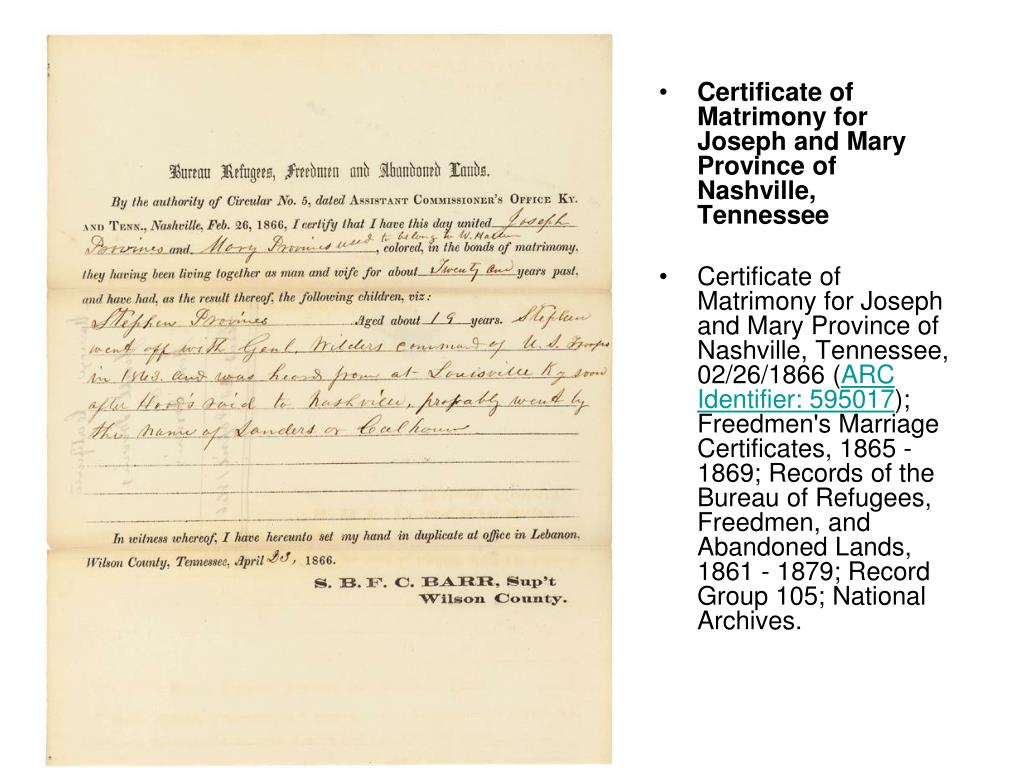 Bureau Refugees, Freedmen and Abandoned Lands.
By the authority of Circular No. 5, dated ASSISTANT COMMISSIONER'S OFFICE KY.
AND TENN., Nashville, Feb. 26, 1866, I certify that I have this day united Joseph
Provines and Mary Provines used to belong to W., colored, in the bonds of matrimony,
they having been living together as man and wife for about Twenty one years past,
and have had, as the result thereof, the following children, viz:
Stephen Provines Aged about 19 years. Stephen
went off with Genl. Wilders command of U. S. Troops
in 1863. and was heard from at Louisville Ky soon
after Hood's raid to Nashville, probably went by
the name of Sanders or Calhoun
In witness whereof, I have hereunto set my hand in duplicate at office in Lebanon,
Wilson County, Tennessee, April 23, 1866.
S. B. F. C. BARR, Sup't
Wilson County.
• Certificate of
Matrimony for
Joseph and Mary
Province of
Nashville,
Tennessee
• Certificate of
Matrimony for Joseph
and Mary Province of
Nashville, Tennessee,
02/26/1866 (ARC
Identifier: 595017);
Freedmen's Marriage
Certificates, 1865 -
1869; Records of the
Bureau of Refugees,
Freedmen, and
Abandoned Lands,
1861 - 1879; Record
Group 105; National
Archives.